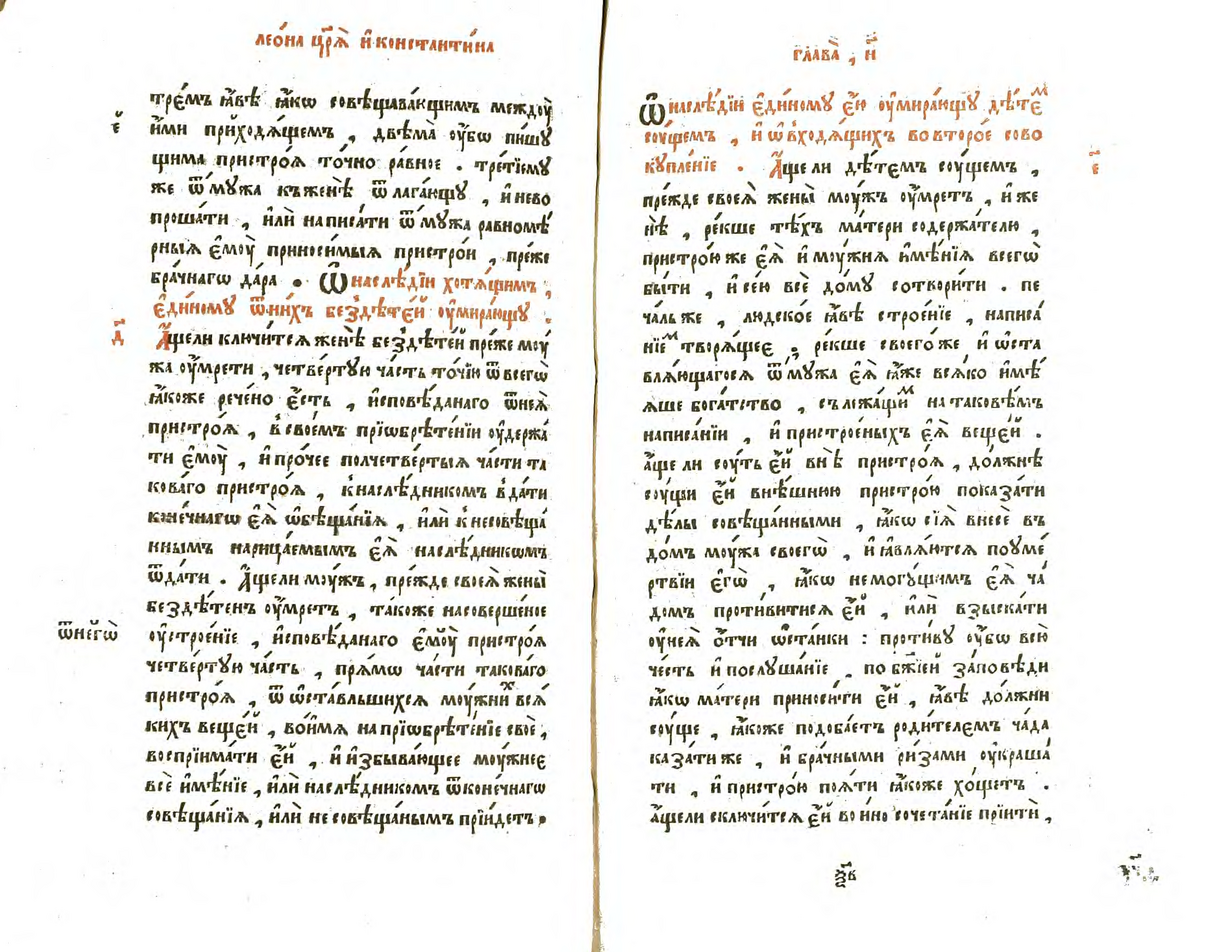 леѡ́на цр҃ѧ̀ и҆ константи́на
тре́мъ ꙗ҆́вѣ ꙗ҆́кѡ совѣщава́ющимъ междоу̀
є҃
и҆́ми прїходѧ́щемъ , двѣма̀ оу҆́бѡ пи́шꙋ
щима пристро́ѧ то́чно ра́вное . тре́тїемꙋ
же ѿ мꙋ́жа къ женѣ̀ ѿлага́ющꙋ , и҆ нево
проша́ти , и҆лѝ написа́ти ѿ мꙋ́жа равномѣ́
рныѧ є҆моу̀ приноси́мыѧ пристро́и , пре́же
бра́чнагѡ да́ра . Ѿ наслѣ́дїи хотѧ́щимъ ,
є҆ди́номꙋ ѿ ни́хъ безъдѣте́й оу҆мира́ющꙋ .
д҃
А҆́щели ключи́тсѧ женѣ̀ бездѣте́й пре́же моу́
жа оу҆мре́ти , четве́ртꙋю ча́сть то́чїю ѿ всегѡ̀
ꙗ҆́коже рече́но є҆́сть , и҆сповѣ́данаго ѿ неѧ̀
пристро́ѧ , в свое́мъ прїѡбрѣте́нїи оу҆держа́
ти є҆моу̀ , и҆ про́чее полчетве́ртыѧ части та
кова́го пристро́ѧ , к наслѣ́дникомъ в да́ти
коне́чнагѡ є҆ѧ̀ ѡ҆бѣща́нїѧ , и҆лѝ к несовѣща́
ннымъ нарица́емымъ є҆ѧ̀ наслѣ́дникѡмъ
ѿда́ти . А҆́щели моу́жъ , пре́жде своеѧ̀ жены̀
бездѣ́тенъ оу҆́мретъ , та́коже насоверше́ное
ѿ него̀
оу҆строе́нїе , и҆сповѣ́данаго є҆моу̀ пристро́ѧ
четве́ртꙋю ча́сть , прѧ́мѡ части такова́го
пристро́ѧ , ѿ ѡ҆ста́вльшихсѧ моу́жниⷯ всѧ́
кихъ веще́й , во и҆́мѧ на прїѡбрѣте́нїе своѐ ,
воспрїима́ти є҆́й , и҆ и҆збыва́ющее моу́жнее
всѐ и҆мѣ́нїе , и҆лѝ наслѣ́дникомъ ѿ коне́чнагѡ
совѣща́нїѧ , и҆лѝ не совѣща́нымъ прїи́детъ .
глава̀ , и҃
Ѿ наслѣ́дїи є҆ди́номꙋ є҆ю̀ оу҆мира́ющꙋ дѣ́теⷨ
соу́щемъ , и҆ ѡ҆ входѧ́щихъ во второ́е сово
є҃
кꙋпле́нїе . А҆́ще ли дѣ́темъ соу́щемъ ,
пре́жде своеѧ̀ жены̀ моу́жъ оу҆́мретъ , и҆ же
нѣ̀ , ре́кше тѣ́хъ ма́тери содержа́телю ,
пристро́ю же є҆ѧ̀ и҆ моу́жнѧ и҆мѣ́нїѧ всегѡ̀
бы́ти , и҆ се́ю всѐ до́мꙋ сотвори́ти . пе
ча́ль же , людско́е ꙗ҆́вѣ строе́нїе , написа́
нїеⷨ творѧ́щее , ре́кше своего́ же и҆ ѡ҆ста
влѧ́ющагосѧ ѿ мꙋ́жа є҆ѧ̀ ꙗ҆́же всѧ́ко и҆мѣ́
ѧше бога́тство , съ лежа́щиⷨ на тако́вѣмъ
написа́нїи , и҆ пристро́еныхъ є҆ѧ̀ веще́й .
а҆́ще ли соу́ть є҆́й внѣ̀ пристро́ѧ , до́лжнѣ
соу́щи є҆́й внѣ́шнюю пристро́ю показа́ти
дѣ́лы совѣща́нными , ꙗ҆́кѡ сїѧ̀ внесѐ въ
до́мъ моу́жа своегѡ̀ , и҆ ꙗ҆влѧ́ютсѧ по оу҆ме́
ртвїи є҆гѡ̀ , ꙗ҆́кѡ немогꙋ́щимъ є҆ѧ̀ ча́
домъ проти́витисѧ є҆́й , и҆лѝ взыска́ти
оу҆ неѧ̀ ѻ҆́тчи ѡ҆ста́нки : проти́вꙋ оу҆́бѡ всю̀
че́сть и҆ послꙋша́нїе , по бж҃їей за́повѣди
ꙗ҆́кѡ ма́тери приноси́ти є҆́й , ꙗ҆́вѣ до́лжни
соу́ще , ꙗ҆́коже подоба́етъ роди́телемъ ча́да
каза́ти же , и҆ бра́чными ри́зами оу҆краша́
ти , и҆ пристро́ю поѧ́ти ꙗ҆́коже хо́щетъ .
а҆́щели сключи́тсѧ є҆́й во и҆но сочета́нїе прїити́ ,
ѯ҃в